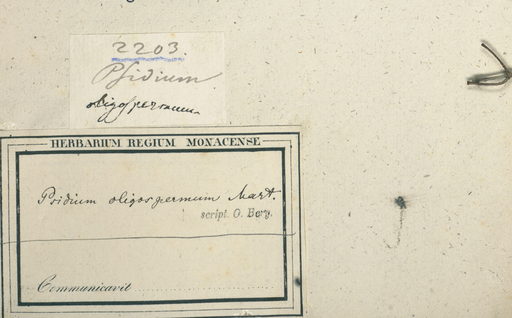 2203.
Psidium
oligospermum
HERBARIUM REGIUM MONACENSE
Psidium oligospermum Mart.
script. O. Berg.
Communicavit